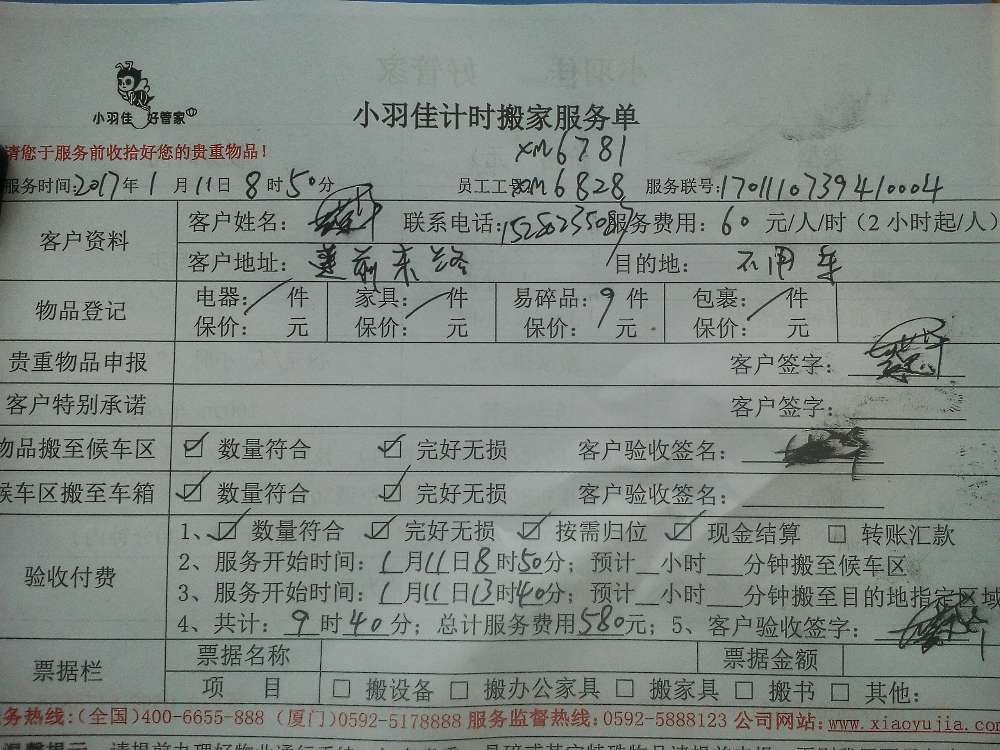 小羽佳 好管家
小羽佳计时搬家服务单
请您于服务前收拾好您的贵重物品！
XM6781
服务时间:2017年1月11日8时50分 员工工号:XM6828 服务联号:1701110739410004
客户资料 客户姓名： 联系电话: 服务费用：60元/人/时（2小时起/人）
客户地址：莲前东路 目的地：不用车
物品登记 电器： 件 家具： 件 易碎品：9件 包裹： 件
保价： 元 保价： 元 保价： 元 保价： 元
贵重物品申报 客户签字：
客户特别承诺 客户签字：
物品搬至候车区 ☑ 数量符合 ☑ 完好无损 客户验收签名：
候车区搬至车箱 ☑ 数量符合 ☑ 完好无损 客户验收签名：
验收付费 1、☑ 数量符合 ☑ 完好无损 ☑ 按需归位 ☑ 现金结算 □ 转账汇款
2、服务开始时间：1月11日8时50分；预计__小时___分钟搬至候车区
3、服务开始时间：1月11日13时40分；预计__小时___分钟搬至目的地指定区域
4、共计：9时40分；总计服务费用580元；5、客户验收签字：
票据栏 票据名称 票据金额
项 目 □ 搬设备 □ 搬办公家具 □ 搬家具 □ 搬书 □ 其他：
务热线:(全国)400-6655-888 (厦门)0592-5178888 服务监督热线:0592-5888123 公司网站:www.xiaoyujia.com